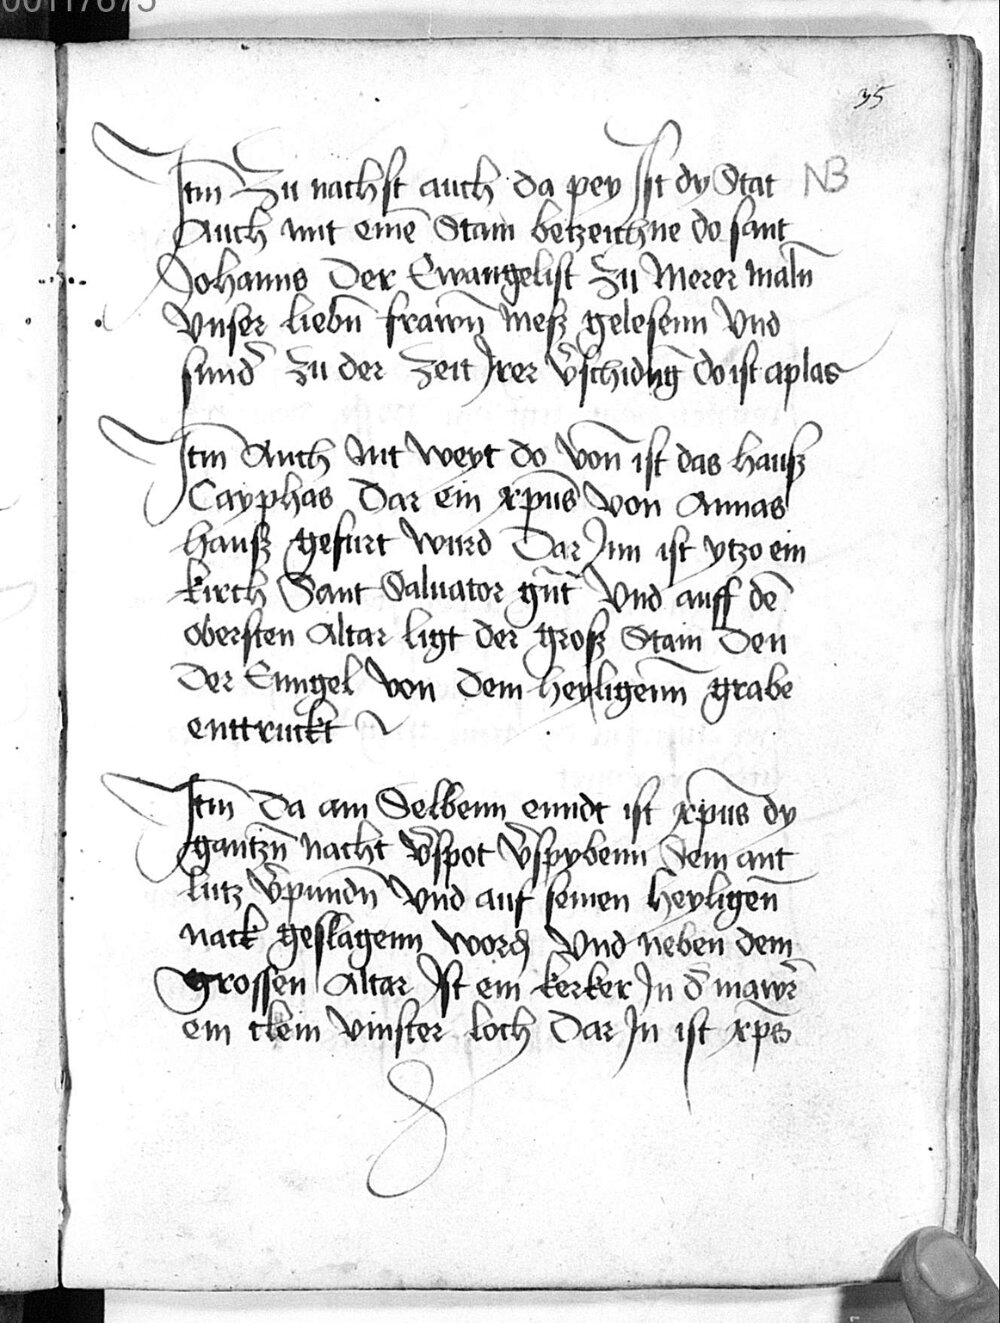 35
Itm Zu nachst auch da pey Ist dy Stat NB
Auch mit eine Stain betzeichne do sant
Johanns Der Ewangelist Zu Merer maln
Vnser liebn frawn Mess gelesenn Vnd
sund Zu der Zeit Irer Vschidng Do ist aplas
Itm Auch nit weyt do von ist das hauß
Cayphas Dar ein xpus von Annas
hauß gefurt wurd Dar Inn ist ytzo ein
kirch Sant Saluator gnt Vnd auff de
obersten Altar ligt der groß Stain Den
Der Enngel von dem heyligenn grabe
enttruckt
Itm Da am Selbenn enndt ist xpus dy
gantzn nacht vspot vspybenn Sein ant
lutz vpundn Vnd auf seinen heyligen
nack geslagenn word Vnd neben dem
grossen Altar Ist ein kerker In d mawr
ein clein vinster loch Dar In ist xps